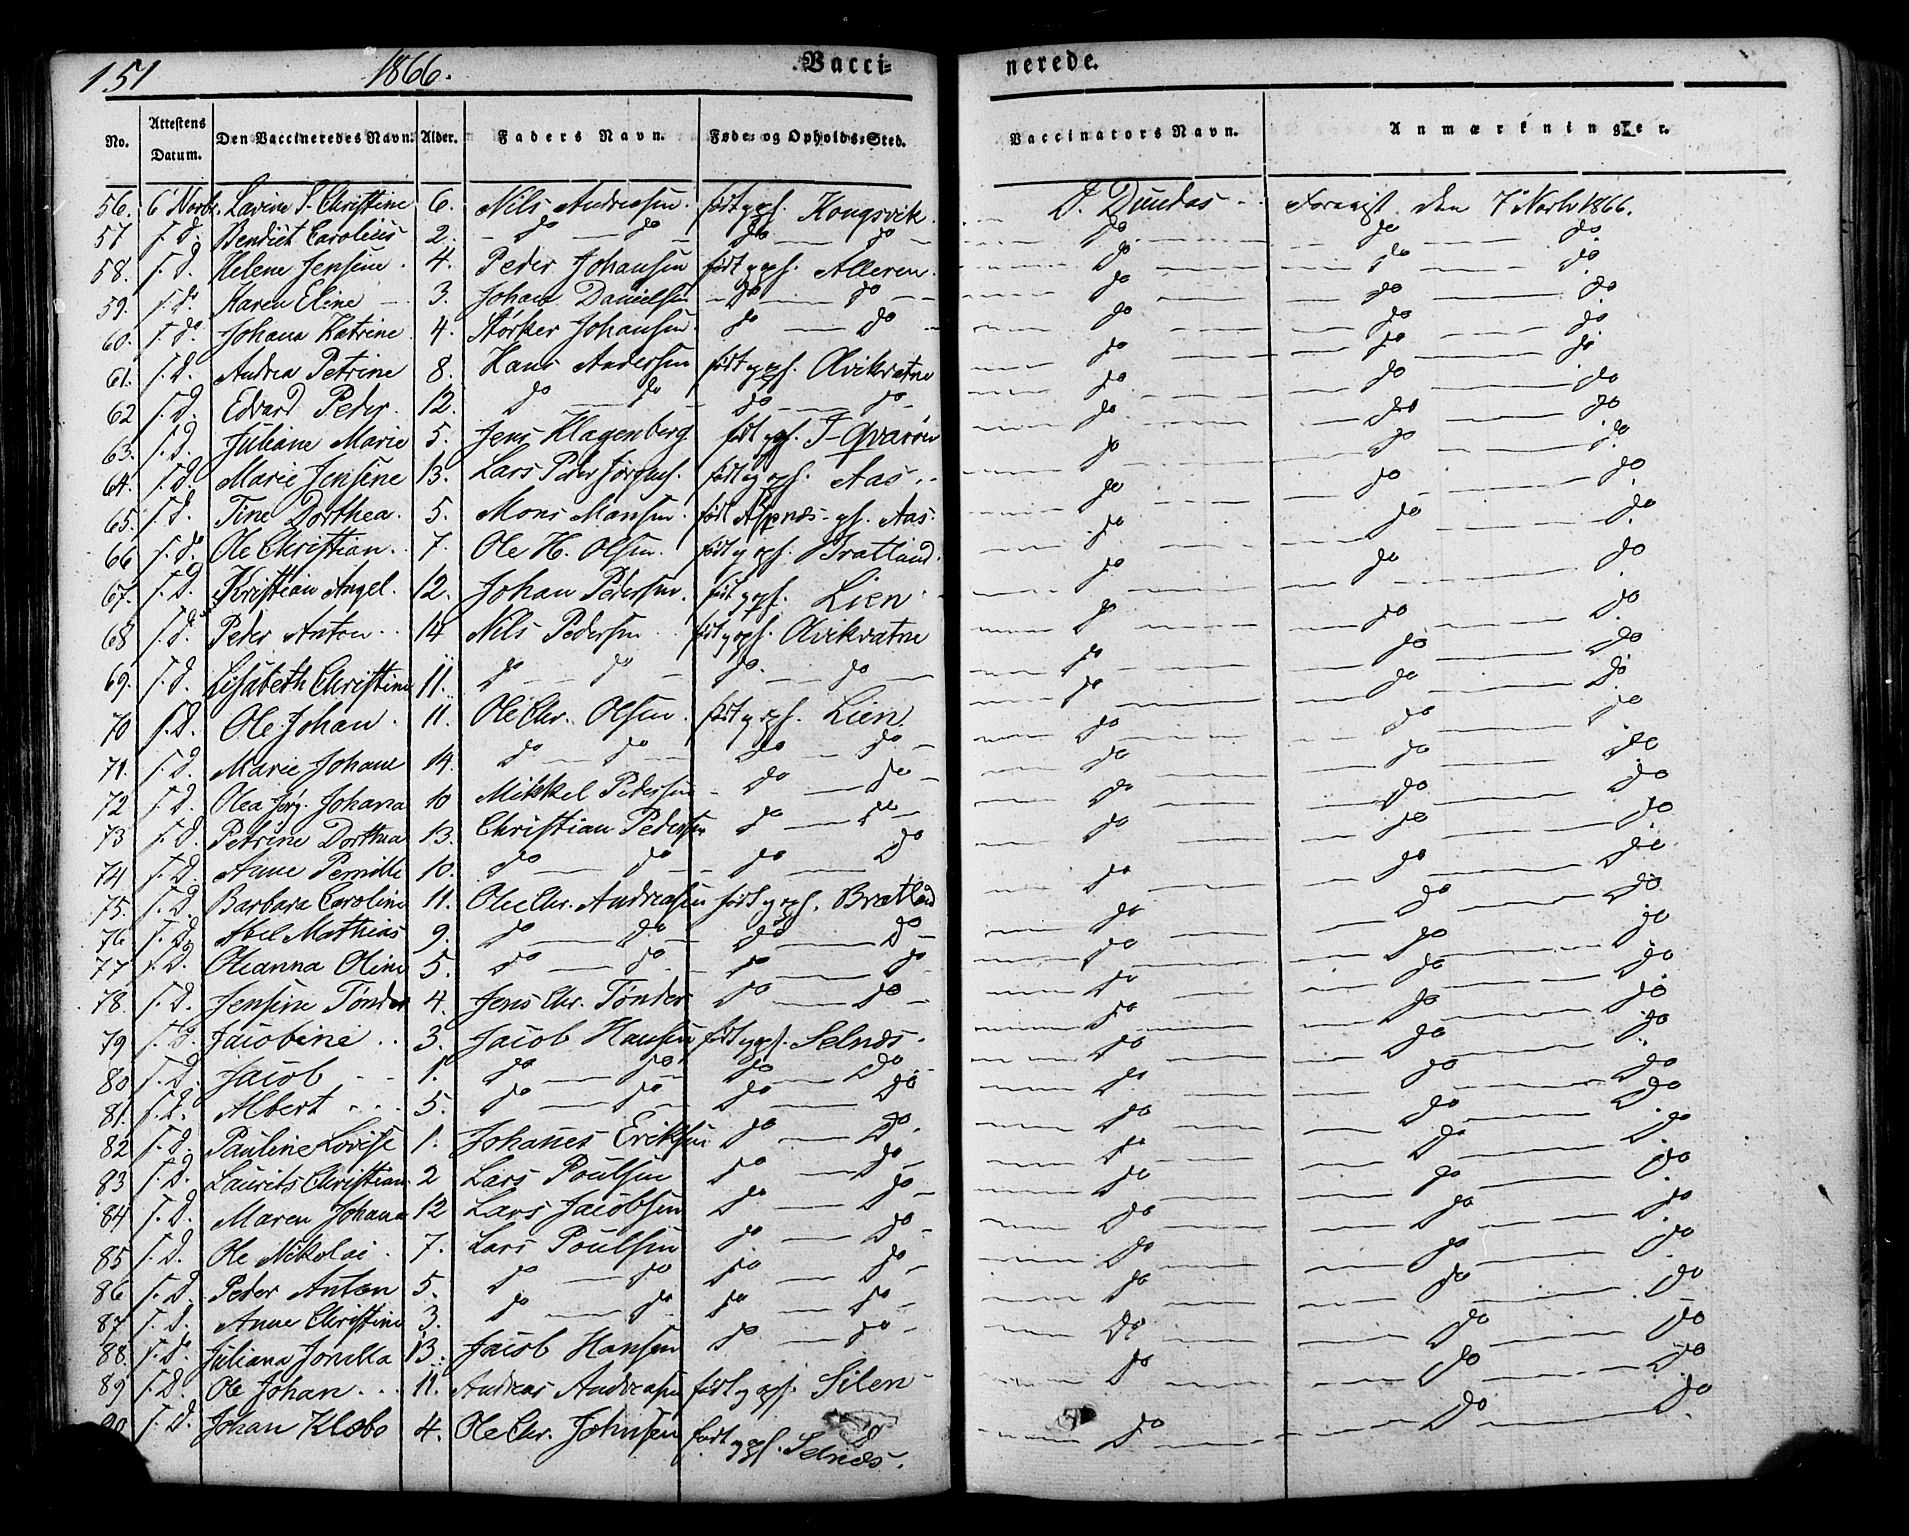 151 1866. Vacci= nerede.
No. Attestens Datum. Den Vaccineredes Navn. Alder. Faders Navn. Føde- og Opholds-Sted. Vaccinators Navn. Anmærkninger.
56. 6 Novbr. Lavine S. Christine 6. Nils Andreasen. født og opf. Kongsvik. D. Dundas Forevist den 7 Novbr 1866.
57 s. D. Bendict Carolius 2. do do do do do do do
58. s. D. Helene Jensine. 4. Peder Johansen født og opf. Alleren. do do do
59. s. do Karen Eline 3. Johan Danielsen do do do do do
60. s. do. Johana Katrine 4. Størker Johansen do do do do do
61. s. D. Andrea Petrine 8. Hans Andersen født og opf. Olvikvatne do do do
62 s. D. Edvard Peder. 12. do do do do do do do
63. s. D. Juliane Marie 5. Jens Klagenberg født og opf. do do do
64. s. D. Marie Jensine 13. Lars Peder født og opf. Aas do do do
65. s. D. Tine Dorthea. 5. Mons Monsen. født opf. Aas. do do do
66 s. do. Ole Christian. 7. Ole H. Olsen. født og opf. Bratland. do do do
67. s. D. Kristian Angel. 12. Johan Pedersen. født og opf. Lien do do do
68 s. D. Peder Anton 14 Nils Pedersen født og opf. Olvikvatne do do do
69. s. D. Elisabeth Christine 11. do do do. do do do do
70 s. D. Ole Johan. 11. Ole Chr. Olsen. født og opf. Lien. do do do
71. s. D. Marie Johane 14. do do do do do do do
72 s. D. Olea Jørg. Johana 10 Mikkel Pedersen do do do do do
73 s. D. Petrine Dorthea 13. Christian Pedersen do do do do do
74 s. D. Anne Pernille 10. do do do do do do do
75. s. D. Barbara Caroline 11. Ole Chr. Andreasen født og opf. Bratland do do do
76 s. D. Axel Mathias 9. do do do do do do do
77 s. D. Oleanna Oline 5. do do do do do do do
78. s. D. Jensine Tønder 4. Jens Chr. Tønder do do do do do
79 s. D. Jacobine 3. Jacob Hansen født og opf. Selnæs. do do do
80 s. D. Jacob 1. do do do do do do do
81. s. D. Albert 5. do do do do do do do
82 s. D. Pauline Lovise 1. Johanes Eriksen do do do do do
83 s. D. Laurits Christian 2 Lars Poulsen do do do do do
84 s. D. Maren Johana 12 Lars Jacobsen do do do do do
85 s. D. Ole Nikolai. 7. Lars Poulsen do do do do do
86 s. D. Peder Anton 5. do do do do do do do
87 s. D. Anne Christine 3. do do do do do do do
88. s. do. Juliana Jonilla 13. Jacob Hansen do do do do do
89 s. D. Ole Johan 11. Andreas Andreasen født og opf. Silen do do do
90 s. D. Johan Klæbo 4. Ole Chr. Johnsen født og opf. Selnæs. do do do